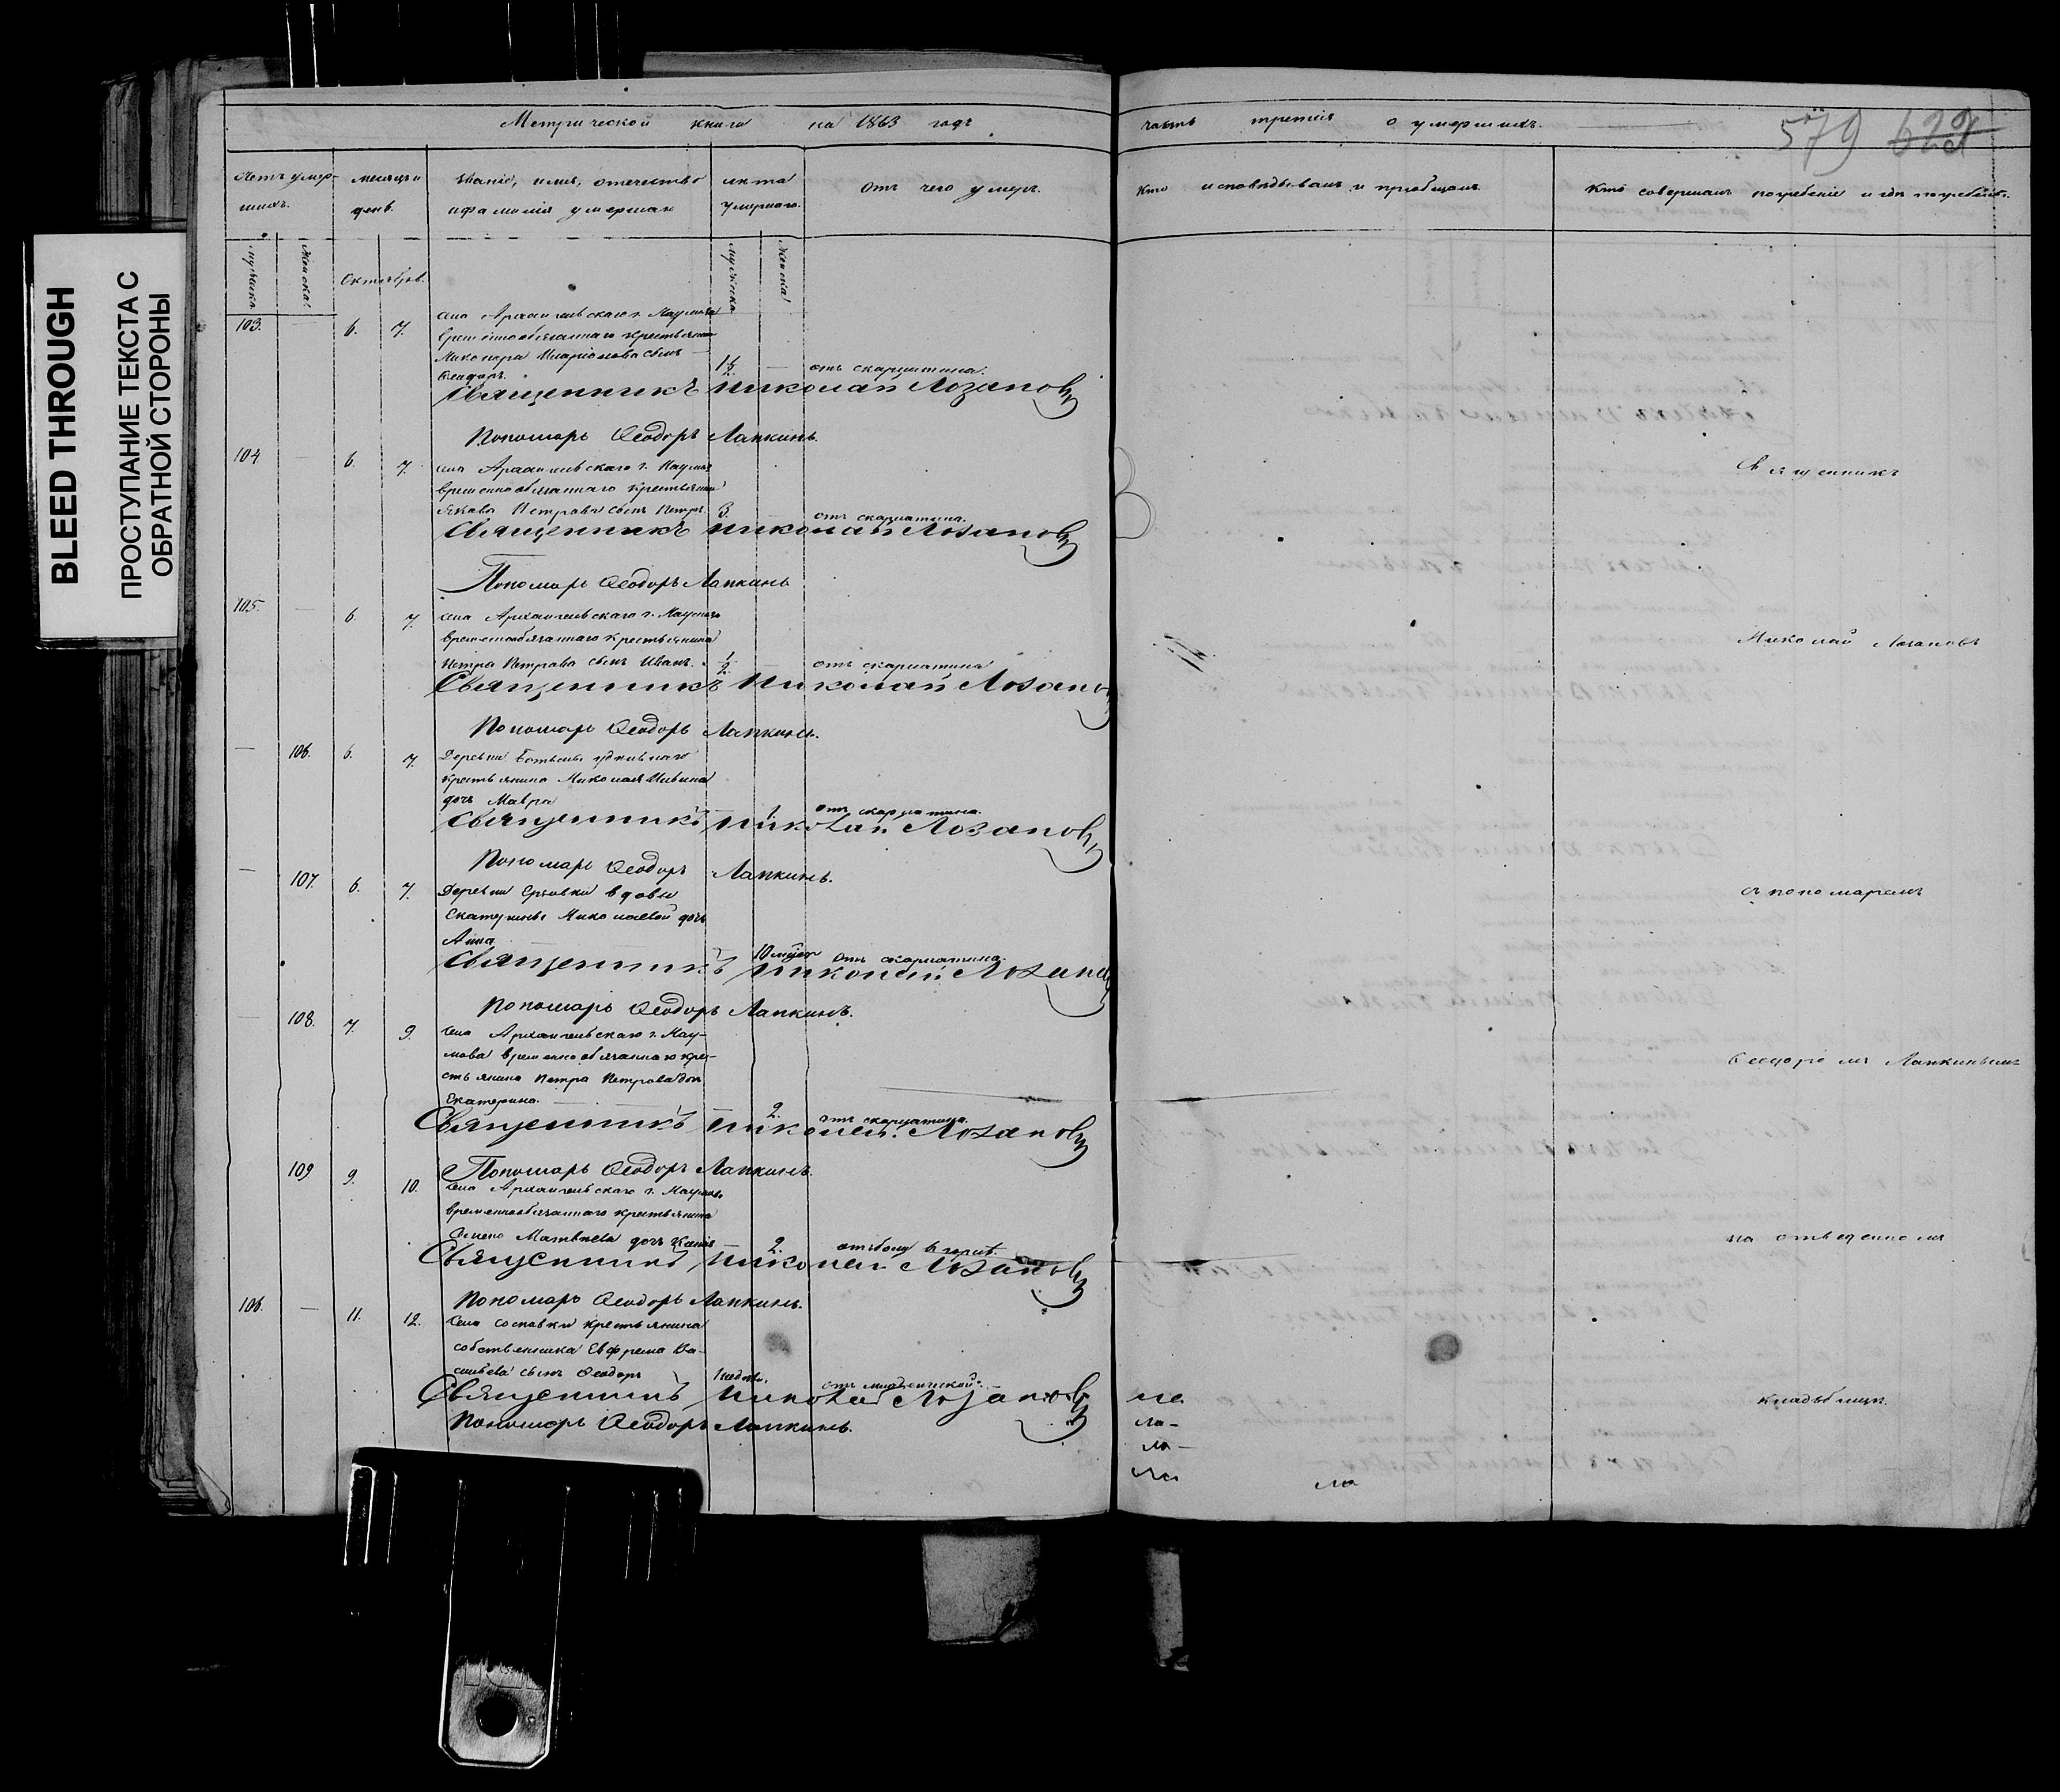 BLEED THROUGH
ПРОСТУПАНИЕ ТЕКСТА С
ОБРАТНОЙ СТОРОНЫ
Метрической книги на 1863 годъ
часть третія о умершихъ.
579
Летъ умер-
шихъ.
месяцъ и
день.
Званіе, имя, отечество
и фамилія умершихъ
лета
умершаго.
отъ чего умеръ.
кто исповѣдывалъ и пріобщалъ.
Кто совершалъ погребеніе и где погребены.
мужска
женска
Октябрь.
мужска
женска
103. — 6. 7.
села Архангельскаго г. Наумова
временнообязаннаго крестьянина
Никонора Иларіонова сынъ
Ѳеодоръ. 1½ — отъ скарлатина.
Священникъ Николай Лозановъ
Пономарь Ѳеодоръ Лапкинъ.
104 — 6. 7.
села Архангельскаго г. Наумова
временнообязаннаго крестьянина
Якова Петрова сынъ Петръ. 3. отъ скарлатина.
Священникъ Николай Лозановъ
Пономарь Ѳеодоръ Лапкинъ
105. — 6. 7.
села Архангельскаго г. Наумова
временнообязаннаго крестьянина
Петра Петрова сынъ Иванъ. ½ — отъ скарлатина
Священникъ Николай Лозановъ
Пономарь Ѳеодоръ Лапкинъ.
— 106. 6. 7.
Деревни
крестьянина Николая
дочь Мавра — 1 отъ скарлатина.
Священникъ Николай Лозановъ
Пономарь Ѳеодоръ Лапкинъ.
— 107. 6. 7.
Деревни вдовы
Екатерины Николаевой дочь
Анна 10 отъ скарлатина.
Священникъ Николай Лозановъ
Пономарь Ѳеодоръ Лапкинъ.
— 108. 7. 9.
Села Архангельскаго г. Нау-
мова временно обязаннаго кре-
стьянина Петра Петрова дочь
Екатерина. — 2. отъ скарлатина.
Священникъ Николай Лозановъ
Пономарь Ѳеодоръ Лапкинъ.
109 9. 10.
Села Архангельскаго г. Наумова
временнообязаннаго крестьянина
Семена Матвѣева дочь — 2. въ горлѣ.
Священникъ Николай Лозановъ
Пономарь Ѳеодоръ Лапкинъ.
106. — 11. 12.
Села крестьянина
собственника Евфрема Ва-
сильева сынъ Ѳеодоръ отъ младенческой.
Священникъ Николай Лозановъ
Пономарь Ѳеодоръ Лапкинъ.
Священникъ
Николай Лозановъ
съ пономаремъ
Ѳеодоромъ Лапкинымъ
на отведенномъ
кладбищѣ.